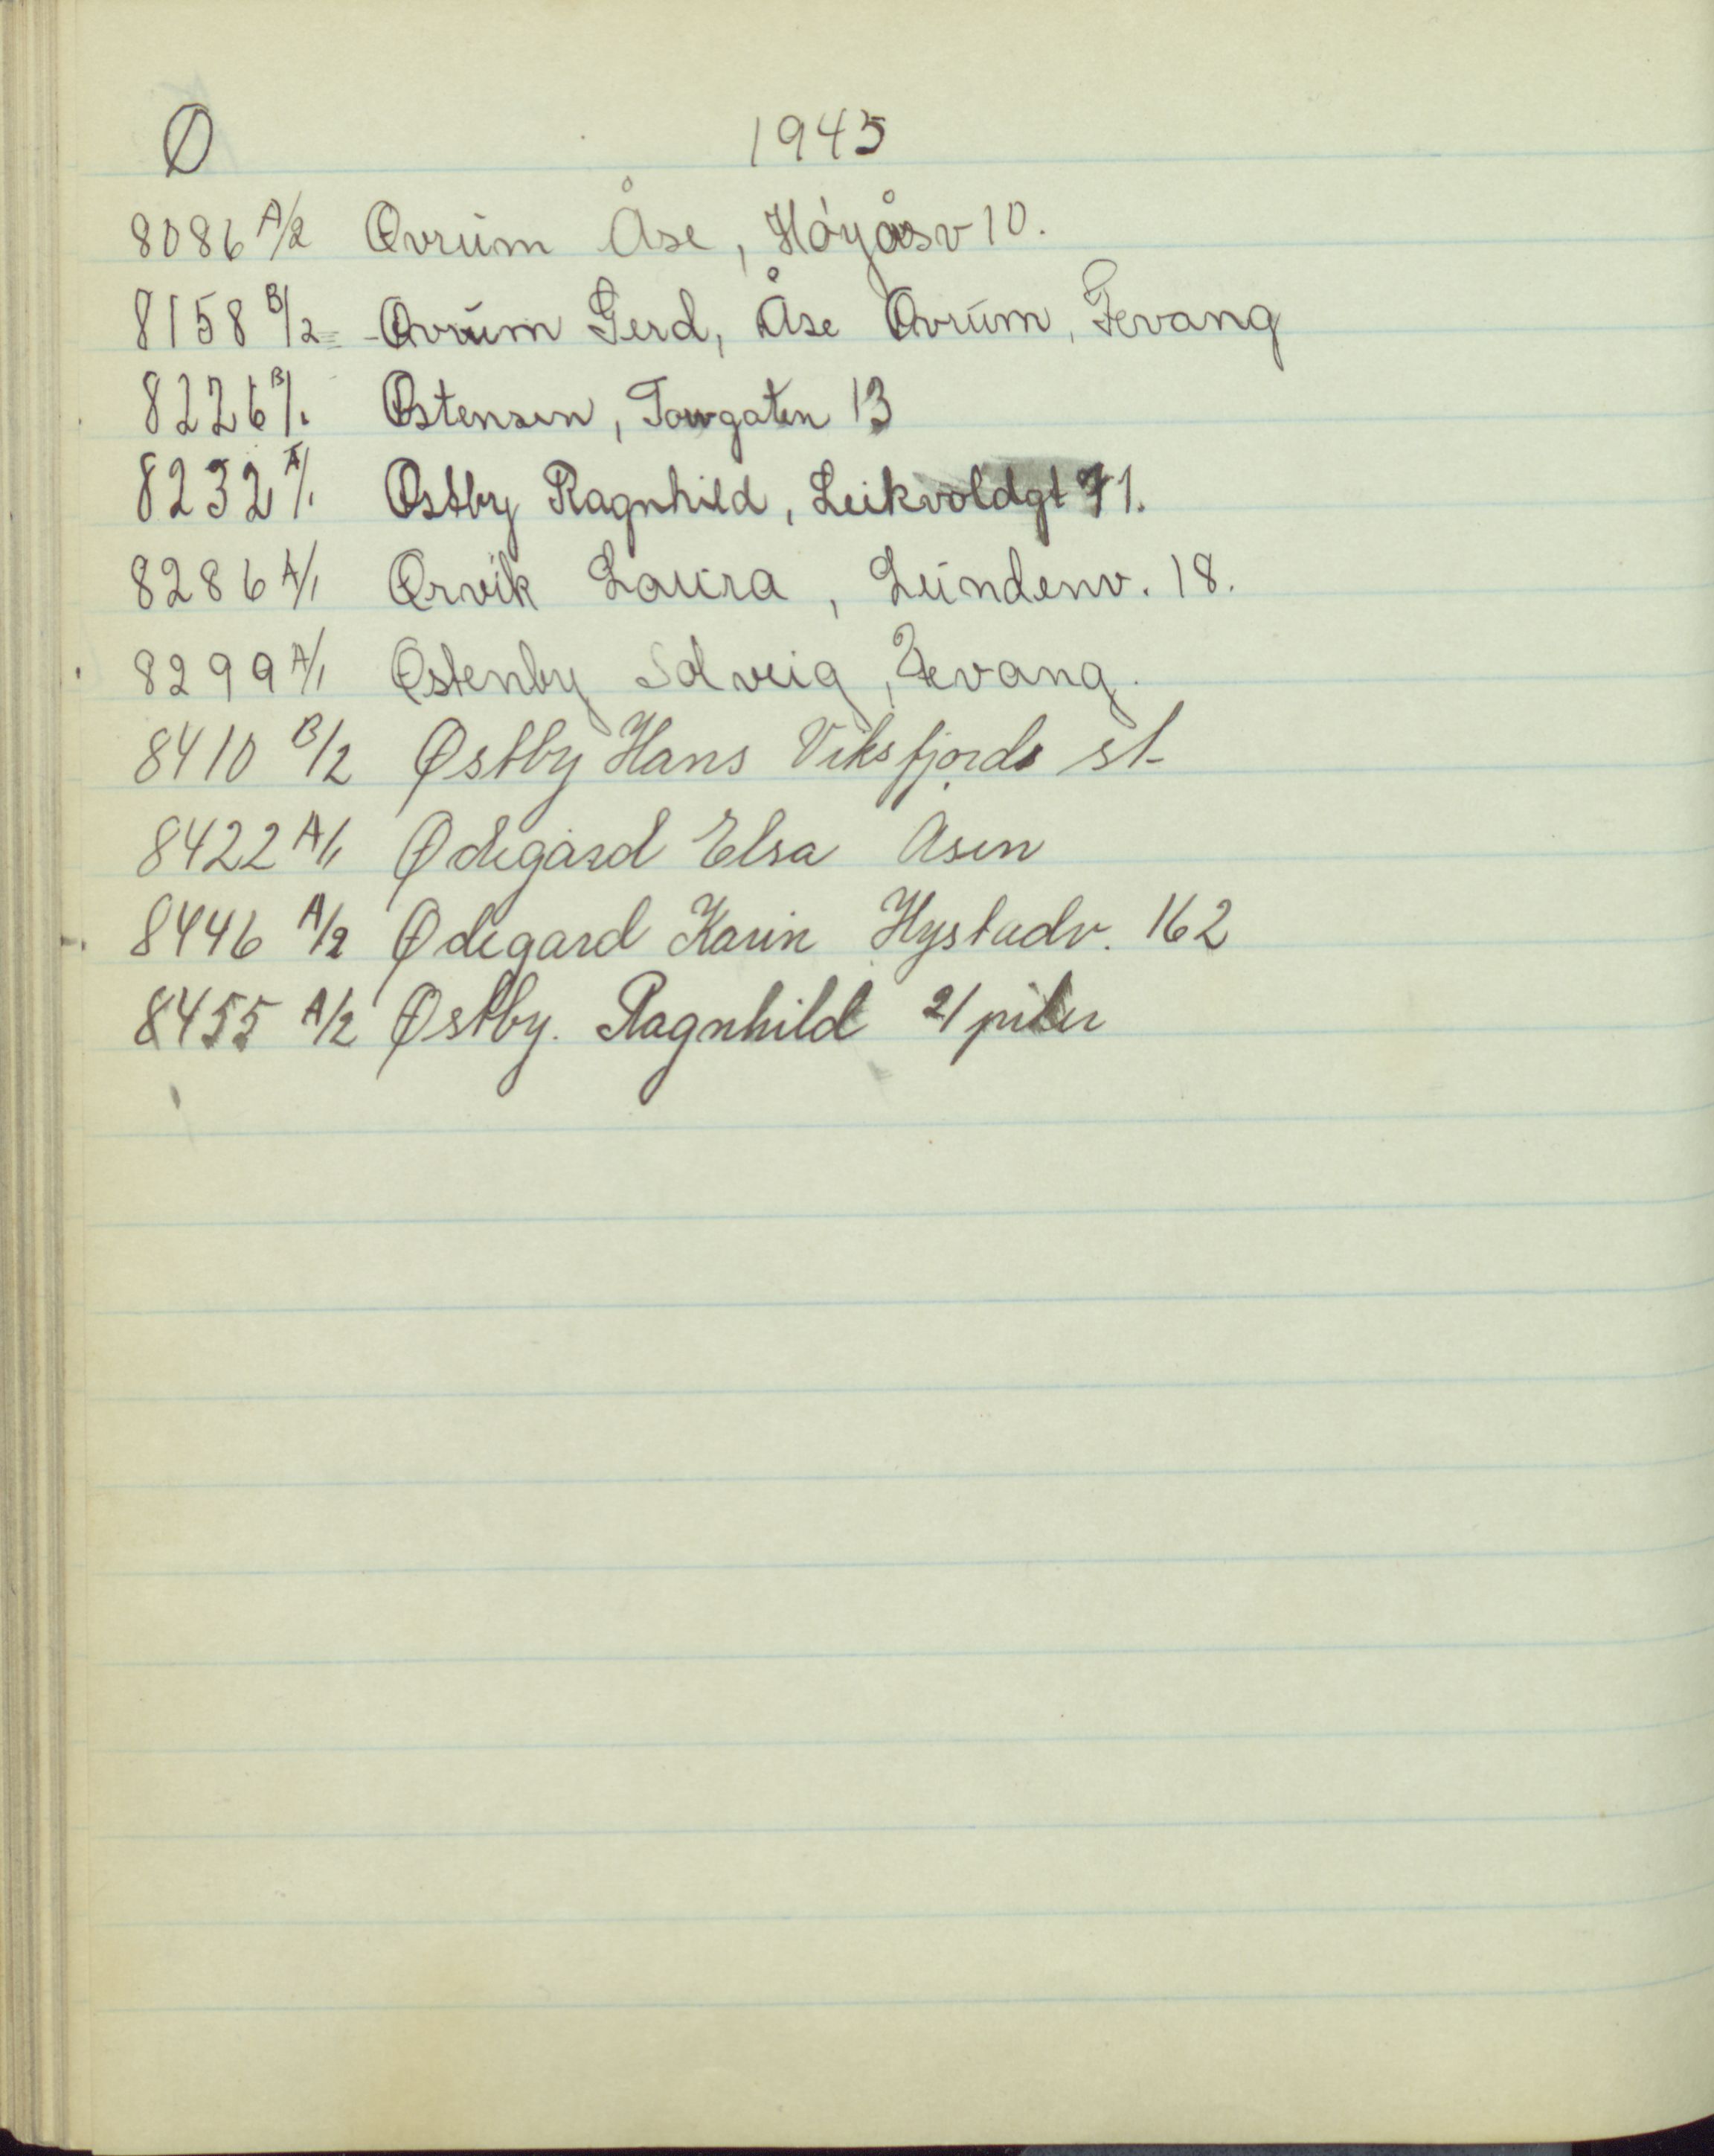 Ø 1945
8086 A/2 Øvrum Åse, Høyåsv 10.
8158 B/2 Øvrum Gerd, Åse Øvrum, Fevang
8226 B/1. Østensen, 13
8232 A/1. Østby Ragnhild, Leikvoldgt 71.
8286 A/1 Ørvik Laura, Lundenv. 18.
8299 A/1 Østenby Solveig, Fevang.
8410 B/2 Østby Hans Viksfjords st
8422 A/1 Ødegård Elsa Åsen
8446 A/2 Ødegard Karin Hystadv. 162
8455 A/2 Østby. Ragnhild 2/